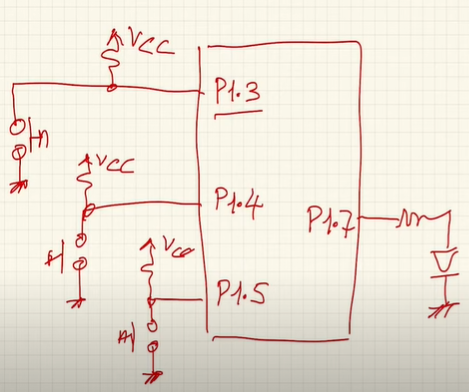 VCC
P1.3
VCC
P1.4
P1.7
VCC
P1.5